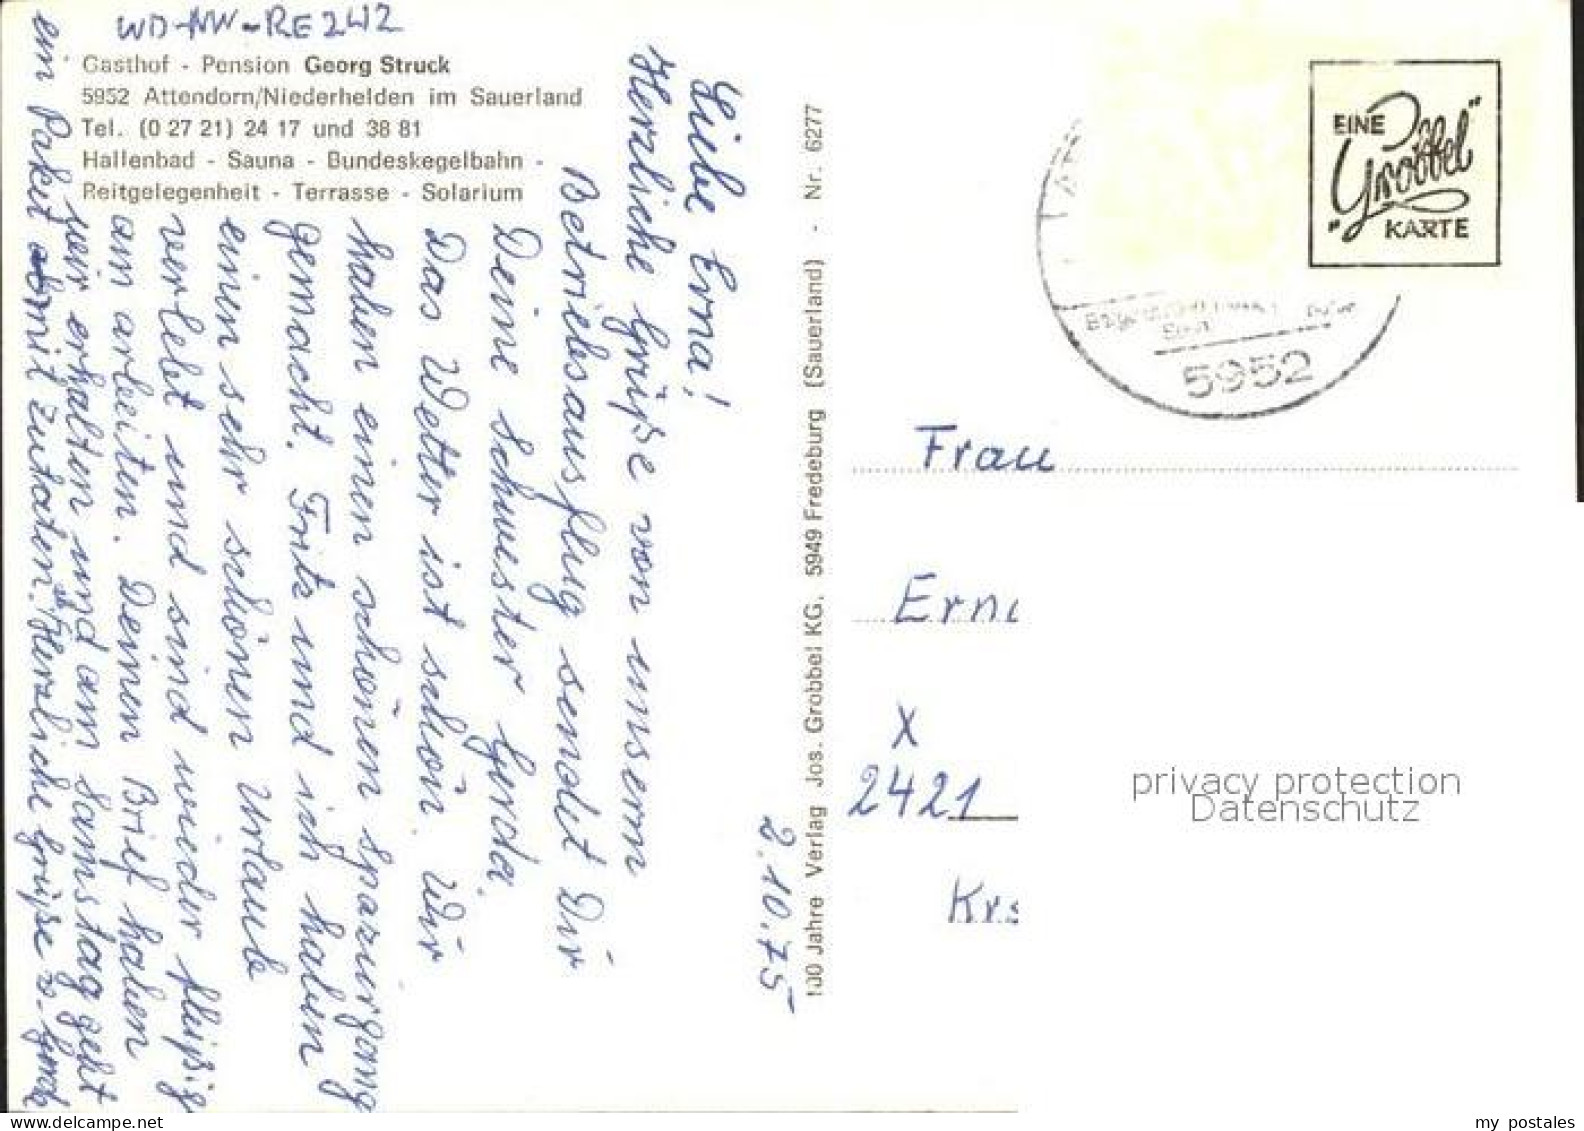 WD-NW-RE242
Gasthof - Pension Georg Struck
5952 Attendorn/Niederhelden im Sauerland
Tel. (0 27 21) 24 17 und 38 81
Hallenbad - Sauna - Bundeskegelbahn -
Reitgelegenheit - Terrasse - Solarium
2.10.75
Liebe Erna!
Herzliche Grüße von unserm
Betriebsausflug sendet Dir
Deine Schwester Gerda.
Das Wetter ist schön. Wir
haben einen schönen Spaziergang
gemacht. Fritz und ich haben
einen sehr schönen Urlaub
verlebt und sind wieder fleißig
am arbeiten. Deinen Brief haben
wir erhalten und am Samstag geht
ein Paket mit Zutaten ab. Herzliche Grüße v. Gerda
100 Jahre Verlag Jos. Grobbel KG, 5949 Fredeburg (Sauerland) - Nr. 6277
EINE
"Grobbel"
KARTE
5952
Frau
Erna
X
2421
Krs
privacy protection
Datenschutz
my postales